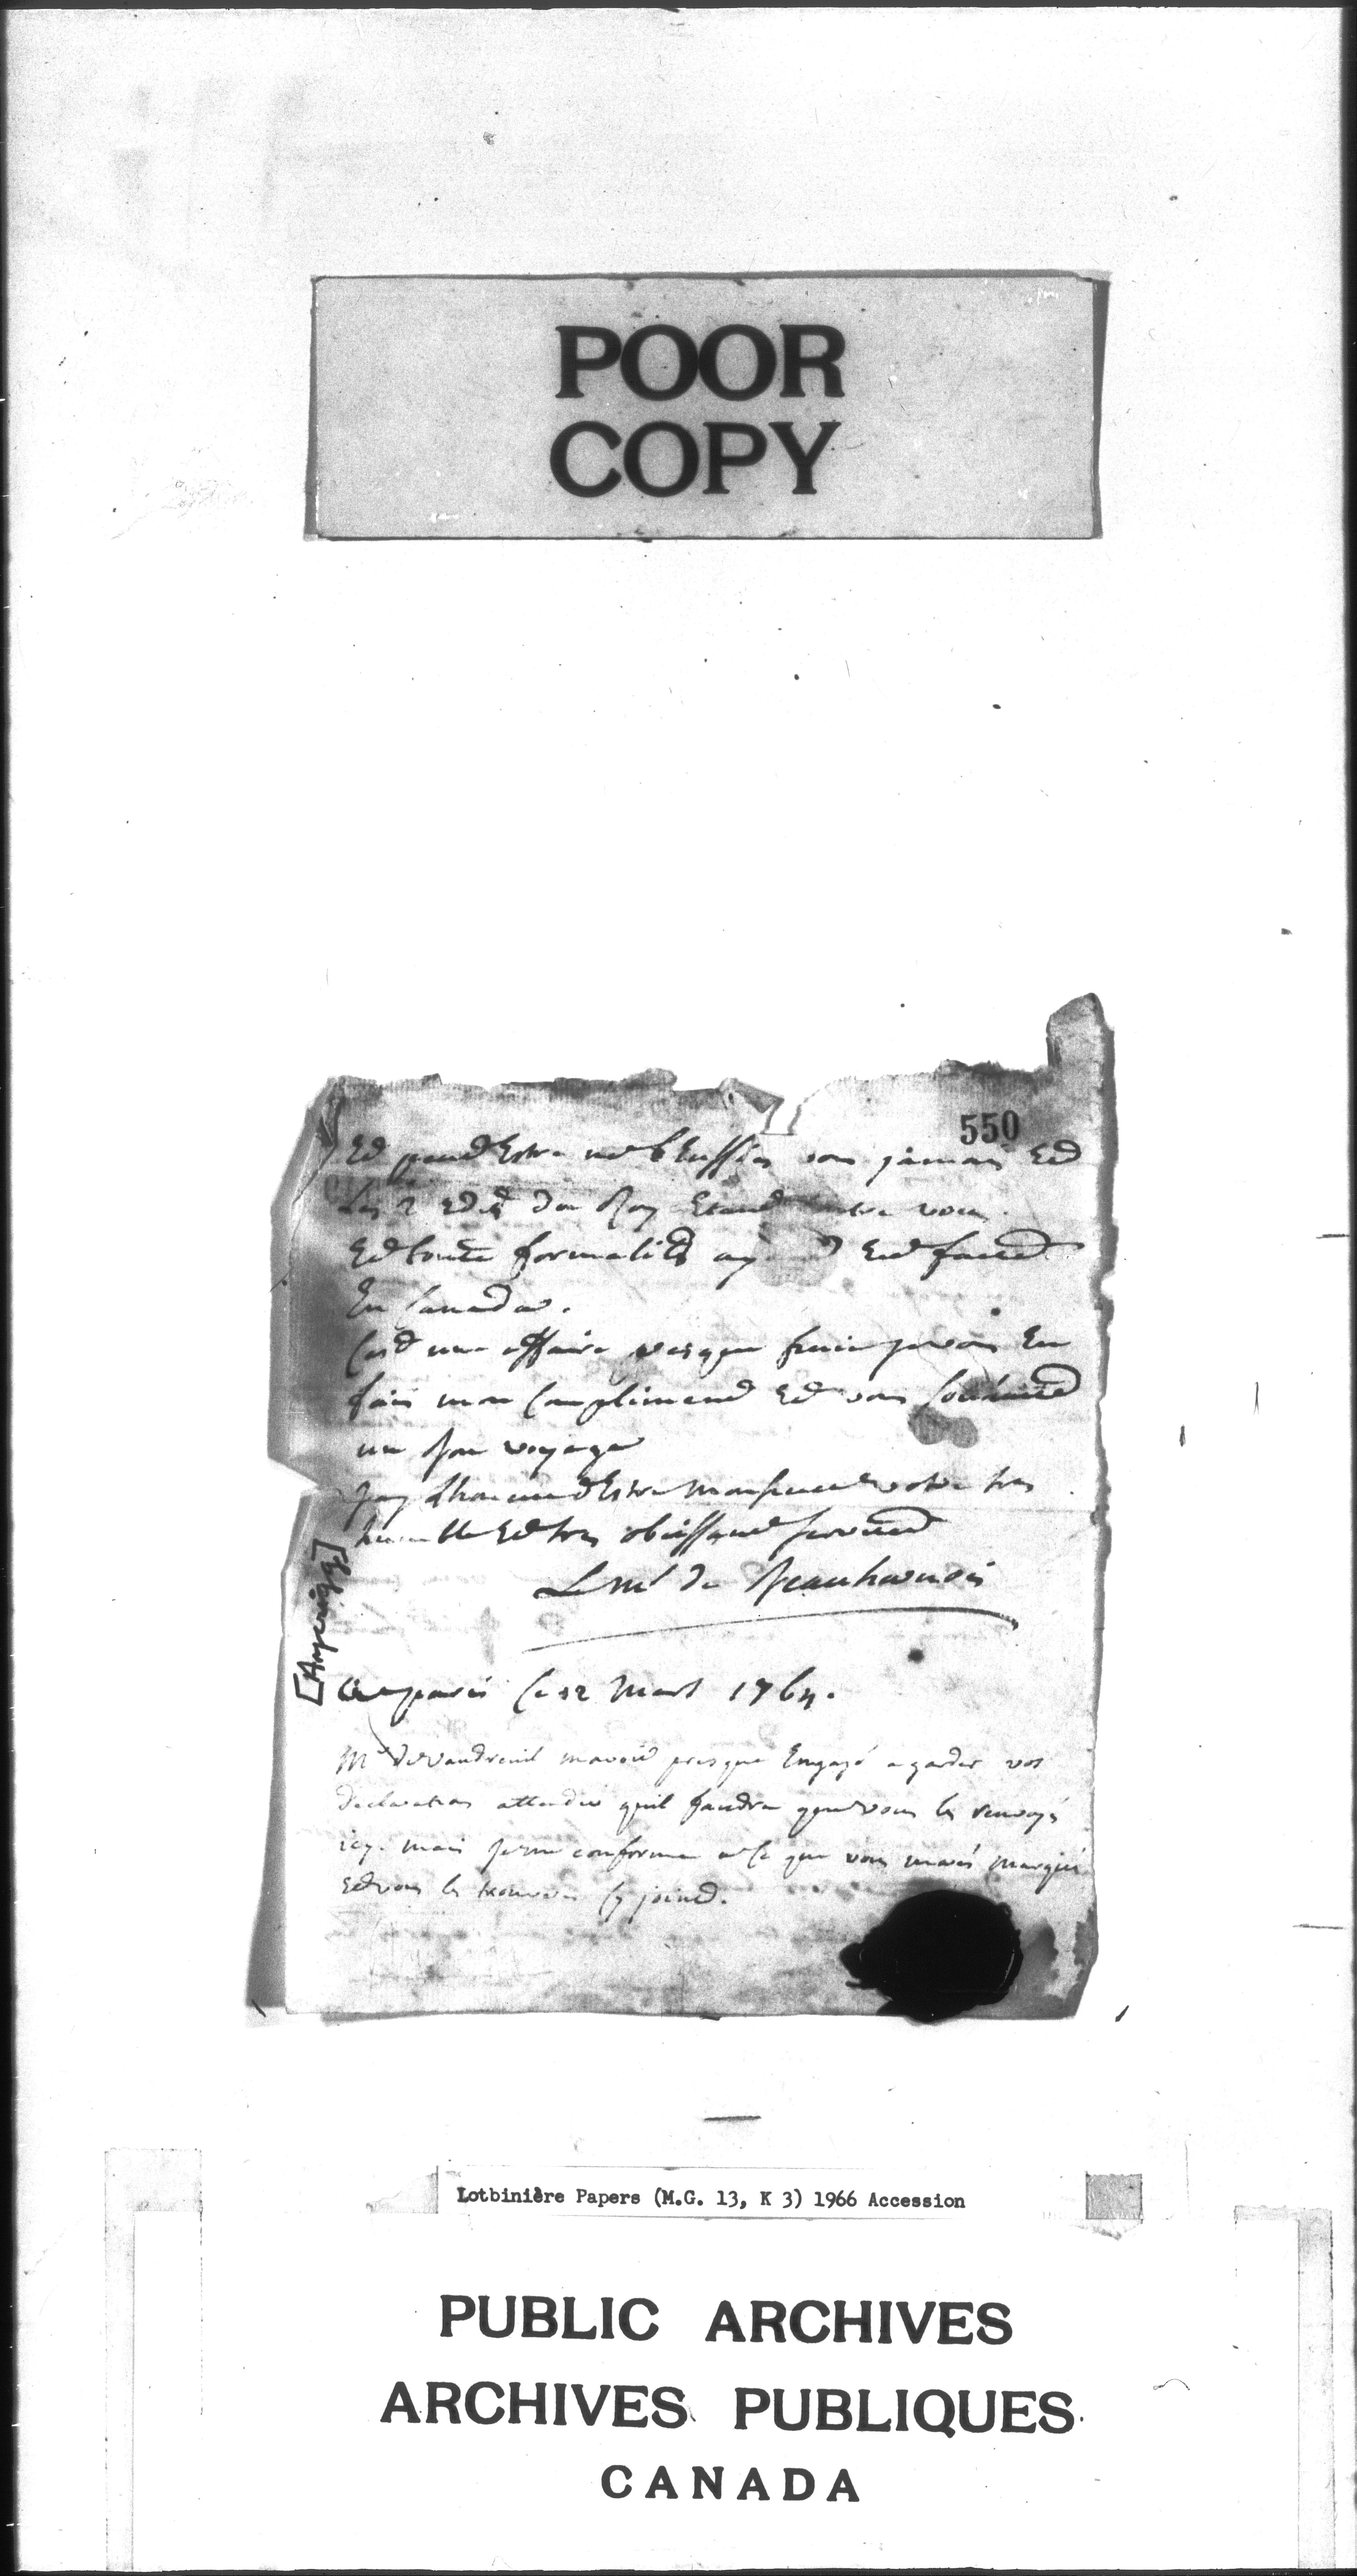 POOR
COPY
550
Et peut Estre ne leussies vous jamais Et
les 2 Edits du Roy Etant contre vous.
Et toute formalité Eté faitte
En Canada.
Cest une affaire presque finie je vous En
fais mon Compliment Et vous souhaitte
un bon voyage
jay Lhonneur dEstre Monsieur votre tres
humble Et tres obeissant serviteur
Lmis de Beauharnois
a paris Ce 12 Mars 1764.
Mr de Vaudreuil mavoit presque Engagé a garder vos
declarations attendu quil faudra que vous les renvoyés
icy. mais je me conforme a Ce que vous mavés marqué
Et vous les trouverés Cy joint.
Lotbinière Papers (M.G. 13, K 3) 1966 Accession
PUBLIC ARCHIVES
ARCHIVES PUBLIQUES
CANADA